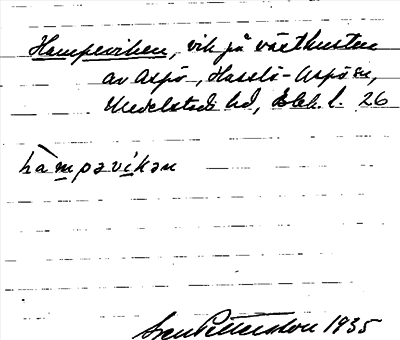 Hampeviken, vik på västkusten
av Aspö, Hasslö-Aspö sn,
Medelstads hd, Blek. l. 26
hàmpəvikən
Sven Petersson 1935